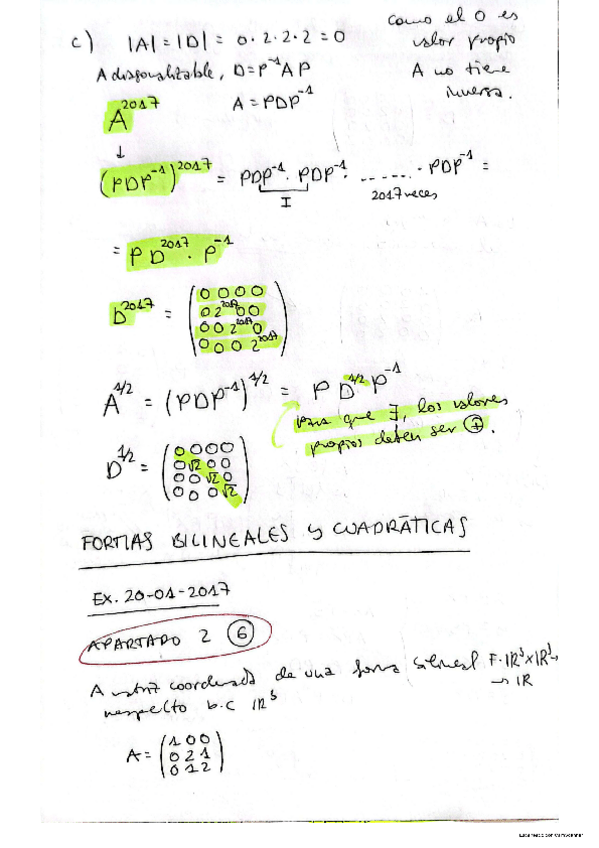 c) |A| = |D| = 0 · 2 · 2 · 2 = 0
como el 0 es
valor propio
A no tiene
inversa.
A diagonalizable, D = P⁻¹AP
A²⁰¹⁷ A = PDP⁻¹
↓
(PDP⁻¹)²⁰¹⁷ = PDP⁻¹ · PDP⁻¹ · ....... · PDP⁻¹ =
I 2017 veces
= P D²⁰¹⁷ · P⁻¹
D²⁰¹⁷ = ( 0 0 0 0
0 2²⁰¹⁷ 0 0
0 0 2²⁰¹⁷ 0
0 0 0 2²⁰¹⁷ )
A^1/2 = (PDP⁻¹)^1/2 = P D^1/2 P⁻¹
para que ∃, los valores
propios deben ser ⊕.
D^1/2 = ( 0 0 0 0
0 √2 0 0
0 0 √2 0
0 0 0 √2 )
FORMAS BILINEALES y CUADRÁTICAS
Ex. 20-01-2017
APARTADO 2 ⑥
A matriz coordenada de una forma bilineal F: IR³×IR³→
→ IR
respecto b.c IR³
A = ( 1 0 0
0 2 1
0 1 2 )